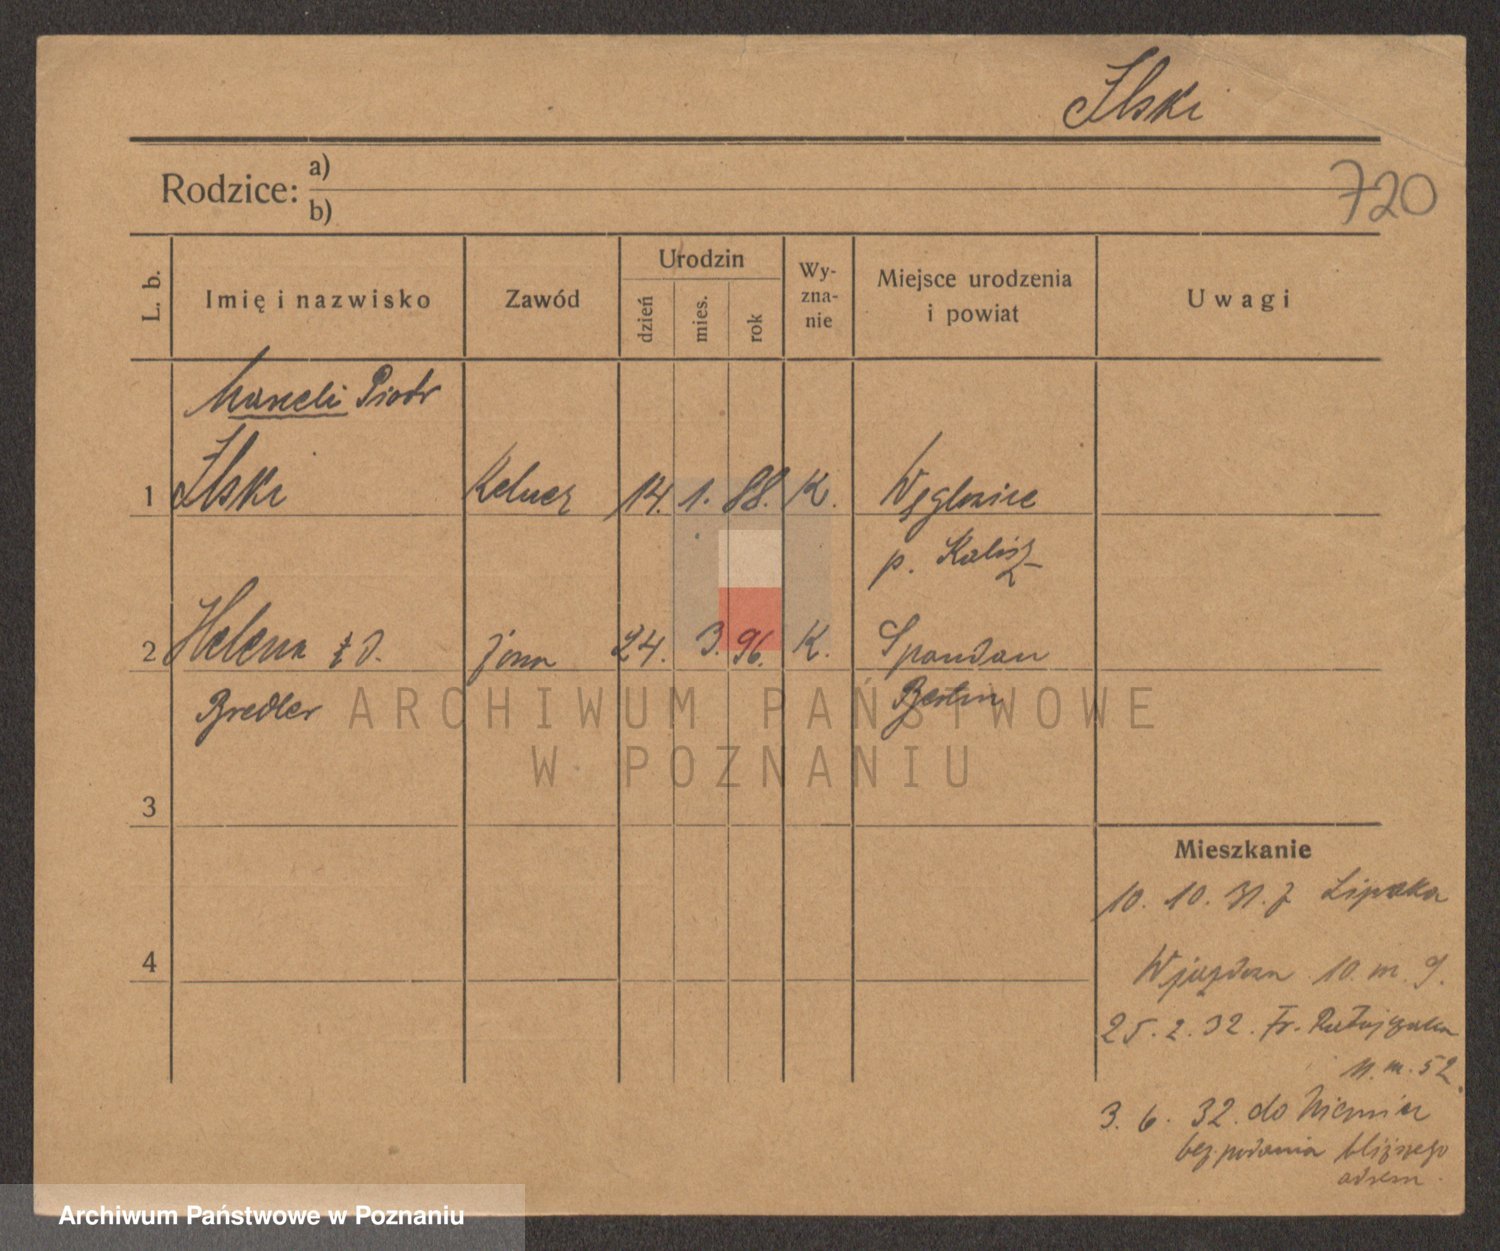 Ilski
Rodzice: a)
b)
720
L. b.
Imię i nazwisko
Zawód
Urodzin
dzień
mies.
rok
Wy-
zna-
nie
Miejsce urodzenia
i powiat
Uwagi
Marceli Piotr
1 Ilski Kelner 14. 1. 88. K. Węglowice
p. Kalisz
2 Helena z d. żona 24. 3. 96. K. Spandau
Bredler Berlin
3
4
Mieszkanie
10. 10. 31. z Lipska
Wjazdowa 10. m. 9.
25. 2. 32. Fr. Ratajczaka
11. m. 52.
3. 6. 32. do Niemiec
bez podania bliższego
adresu.
ARCHIWUM PAŃSTWOWE
W POZNANIU
Archiwum Państwowe w Poznaniu